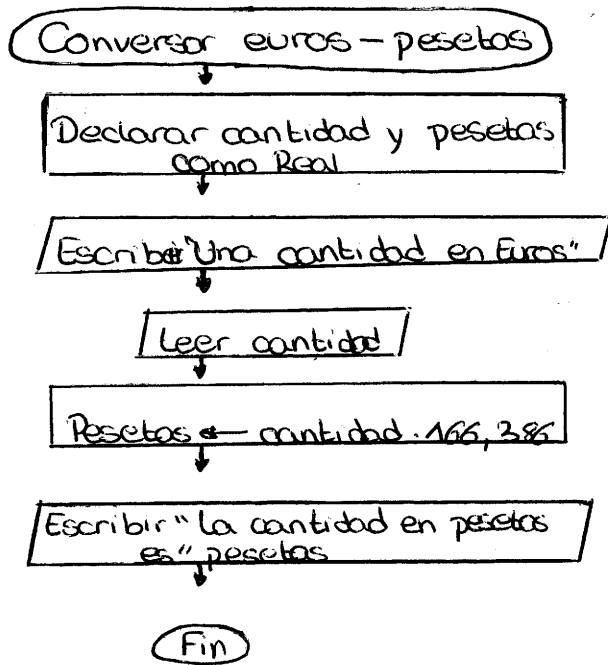 Conversor euros - pesetas
Declarar cantidad y pesetas
como Real
Escribir "Una cantidad en Euros"
Leer cantidad
Pesetas ← cantidad . 166,386
Escribir "la cantidad en pesetas
es" pesetas
Fin